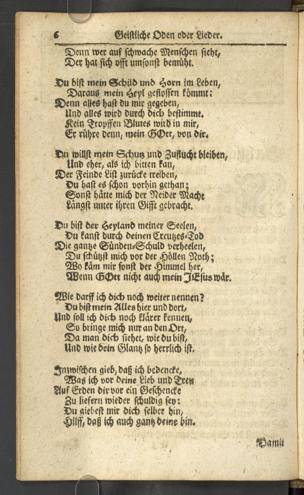 6 Geistliche Oden oder Lieder.
Denn wer auf schwache Menschen sieht,
Der hat sich offt umsonst bemüht.
Du bist mein Schild und Horn im Leben,
Daraus mein Heyl geflossen kömmt:
Denn alles hast du mir gegeben,
Und alles wird durch dich bestimmt.
Kein Tropffen Blutes wird in mir,
Er rühre denn, mein GOtt, von dir.
Du willst mein Schutz und Zuflucht bleiben,
Und eher, als ich bitten kan,
Der Feinde List zurücke treiben,
Du hast es schon vorhin gethan;
Sonst hätte mich der Neider Macht
Längst unter ihren Gifft gebracht.
Du bist der Heyland meiner Seelen,
Du kanst durch deinen Creutzes-Tod
Die gantze Sünden-Schuld verheelen,
Du schützst mich vor der Höllen Noth;
Wo käm mir sonst der Himmel her,
Wenn GOtt nicht auch mein JEsus wär.
Wie darff ich dich noch weiter nennen?
Du bist mein Alles hier und dort,
Und soll ich dich noch klärer kennen,
So bringe mich nur an den Ort,
Da man dich siehet, wie du bist,
Und wie dein Glantz so herrlich ist.
Inzwischen gieb, daß ich bedencke,
Was ich vor deine Lieb und Treu
Auf Erden dir vor ein Geschencke
Zu liefern wieder schuldig sey:
Du giebest mir dich selber hin,
Hilff, daß ich auch gantz deine bin.
Damit